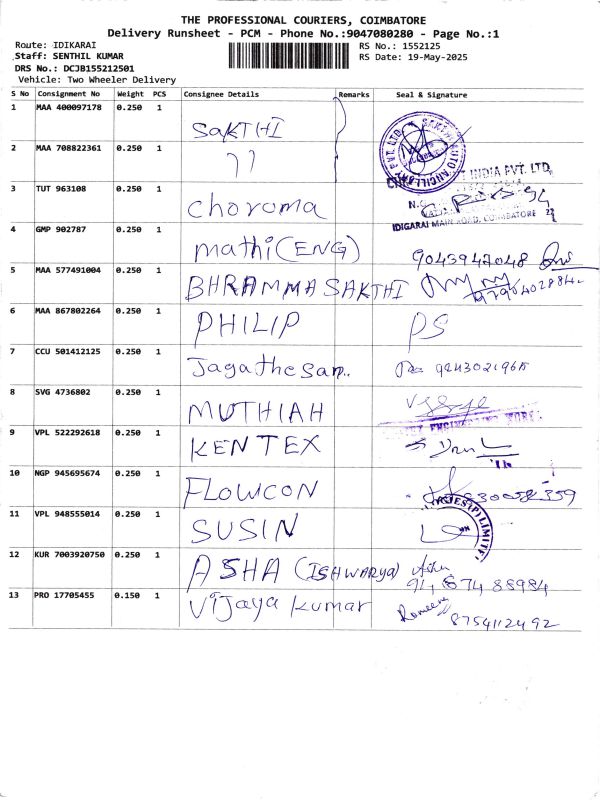 THE PROFESSIONAL COURIERS, COIMBATORE
Delivery Runsheet - PCM - Phone No.:9047080280 - Page No.:1
Route: IDIKARAI RS No.: 1552125
Staff: SENTHIL KUMAR RS Date: 19-May-2025
DRS No.: DCJB155212501
Vehicle: Two Wheeler Delivery
S No Consignment No Weight PCS Consignee Details Remarks Seal & Signature
1 MAA 400097178 0.250 1 SAKTHI
2 MAA 708822361 0.250 1 11
3 TUT 963108 0.250 1 Choroma
INDIA PVT. LTD,
IDIGARAI MAIN ROAD, COIMBATORE
4 GMP 902787 0.250 1 mathi (ENG) 9045947048
5 MAA 577491004 0.250 1 BHRAMMA SAKTHI
6 MAA 867802264 0.250 1 PHILIP PS
7 CCU 501412125 0.250 1 Jagathesan..
8 SVG 4736802 0.250 1 MUTHIAH
9 VPL 522292618 0.250 1 KENTEX
10 NGP 945695674 0.250 1 FLOWCON
11 VPL 948555014 0.250 1 SUSIN
12 KUR 7003920750 0.250 1 ASHA (ISHWARYA)
13 PRO 17705455 0.150 1 Vijaya kumar 8754112492